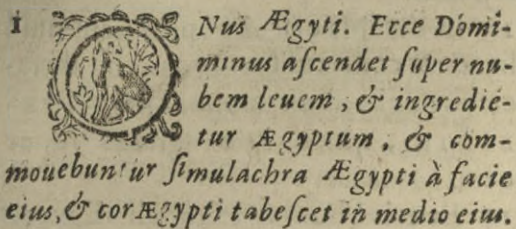 1 ONus Ægypti. Ecce Domi-
minus ascendet super nu-
bem leuem, & ingredie-
tur Ægyptum, & com-
mouebuntur simulachra Ægypti à facie
eius, & cor Ægypti tabescet in medio eius.